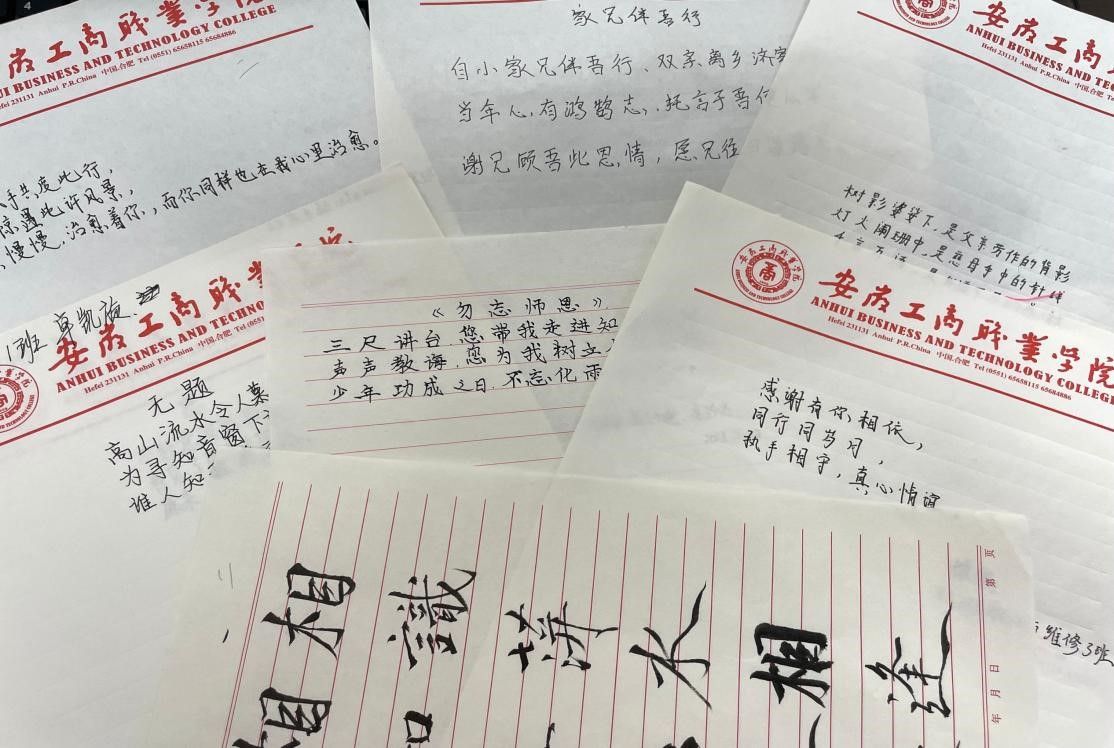 安徽工商职业学院
ANHUI BUSINESS AND TECHNOLOGY COLLEGE
Hefei 231131 Anhui P.R.China 中国.合肥 Tel (0551) 65658115 65684886
手共度此行，
惊遇此许风景，
慢慢，治愈着你，而你同样也在我心里治愈。
家兄伴吾行
自小家兄伴吾行、双亲离乡济家
当年心有鸿鹄志，托言于吾
谢兄顾吾此恩情，愿兄往
安徽工商
ANHUI BUSINESS AND TECH
Hefei 231131 Anhui P.R.China 中国.合肥
树影婆娑下，是父亲劳作的背影
灯火阑珊中，是慈母手中的针线
班
安徽工商职业
ANHUI BUSINESS AND TECHNO
Hefei 231131 Anhui P.R.China 中国.合肥
无题
高山流水令人慕
为寻知音窗下
谁人知
《勿忘师恩》
三尺讲台您带我走进知
声声教诲，您为我树立
少年功成之日，不忘化雨
安徽工商职业学院
ANHUI BUSINESS AND TECHNOLOGY COLLEGE
Hefei 231131 Anhui P.R.China 中国.合肥 Tel (0551) 65658115 65684886
感谢有你相依，
同行同岁月，
执手相守，真心情谊
维修3班
相 识 萍 水 相 逢
相
第 页
年 月 日